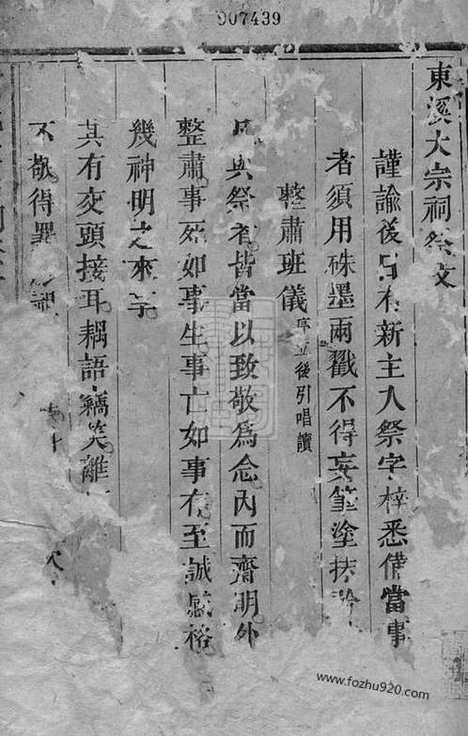 007439
東溪大宗祠祭文
謹諭後日有新主入祭字梓悉備當事
者須用硃墨兩戳不得妄筆塗抹
整肅班儀 後引唱讀
凡與祭者皆當以致敬為念內而齋明外
整肅事死如事生事亡如事存至誠感格
幾神明之來享
其有交頭接耳耦語竊笑離
不敬得罪
www.fozhu920.com